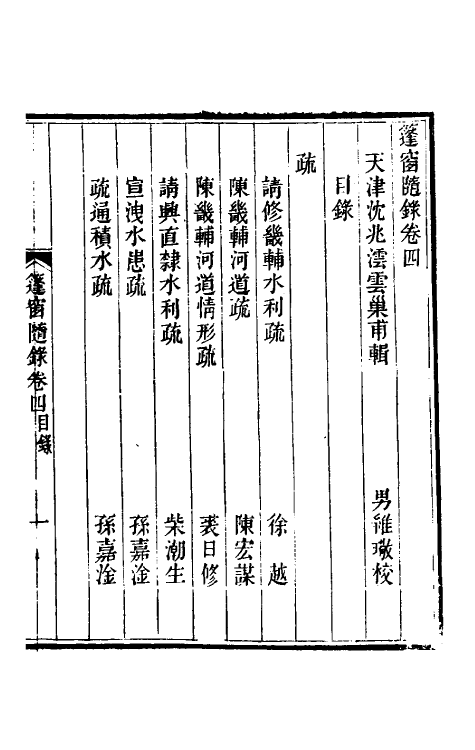 蓬窗隨錄卷四
天津沈兆澐雲巢甫輯　男維璥校
目錄
疏
請修畿輔水利疏　徐越
陳畿輔河道疏　陳宏謀
陳畿輔河道情形疏　裘日修
請興直隸水利疏　柴潮生
宣洩水患疏　孫嘉淦
疏通積水疏　孫嘉淦
蓬窗隨錄卷四目錄　一